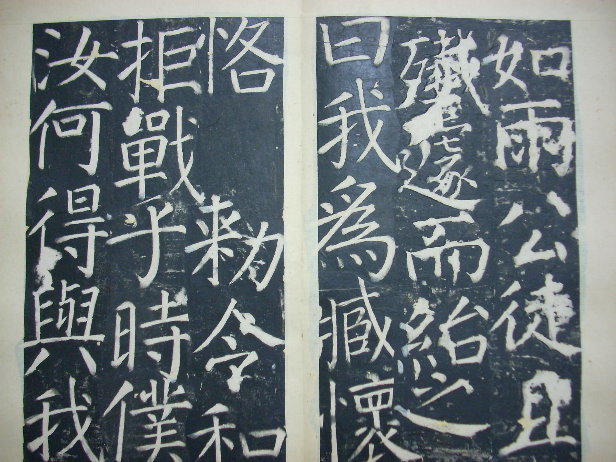 如雨公徒且
殲遽而紿
曰我為臧懷
恪 勑令和
拒戰于時僕
汝何得與我